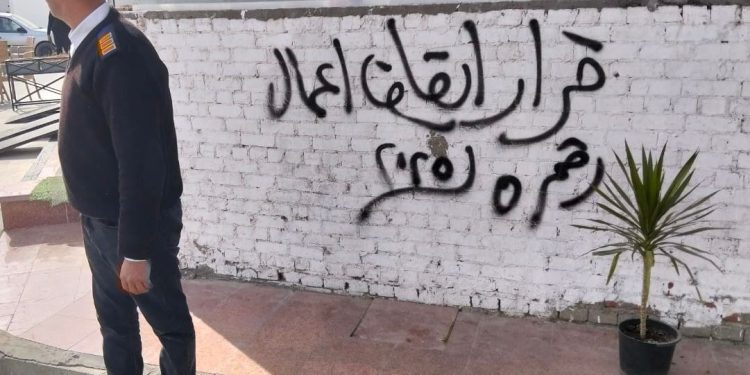 قرار ايقاف اعمال
رقم ٥ لـ ٢٠٢٥